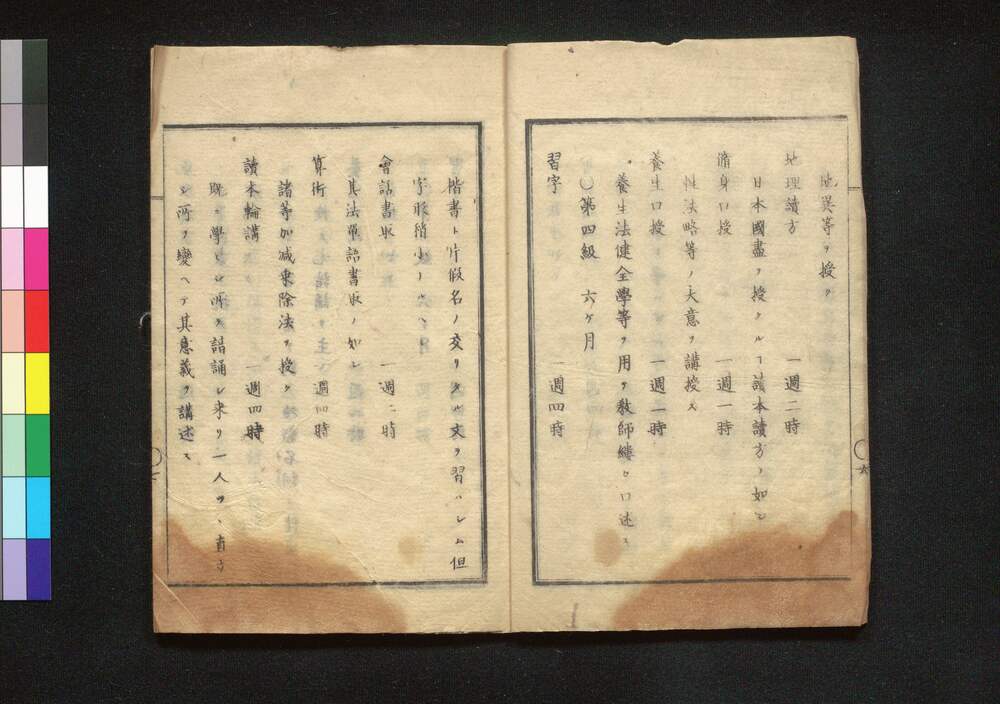 地異等ヲ授ク
地理讀方 一週二時
日本國盡ヲ授クルヿ讀本讀方ノ如シ
脩身口授 一週一時
性法略等ノ大意ヲ講授ス
養生口授 一週一時
養生法健全學等ヲ用ヲ教師縷々口述ス
〇第四級 六ケ月
習字 一週四時
楷書ト片假名ノ交リタル文ヲ習ハシム但
字形稍小ニシ
會話書取 一週二時
其法單語書取ノ如シ
算術 一週四時
諸等加減乘除法ヲ授ク
讀本輪講 一週四時
既ニ學ヒシ所ヲ諳誦シ来リ一人ツヽ直立
シ所ヲ變ヘテ其意義ヲ講述ス